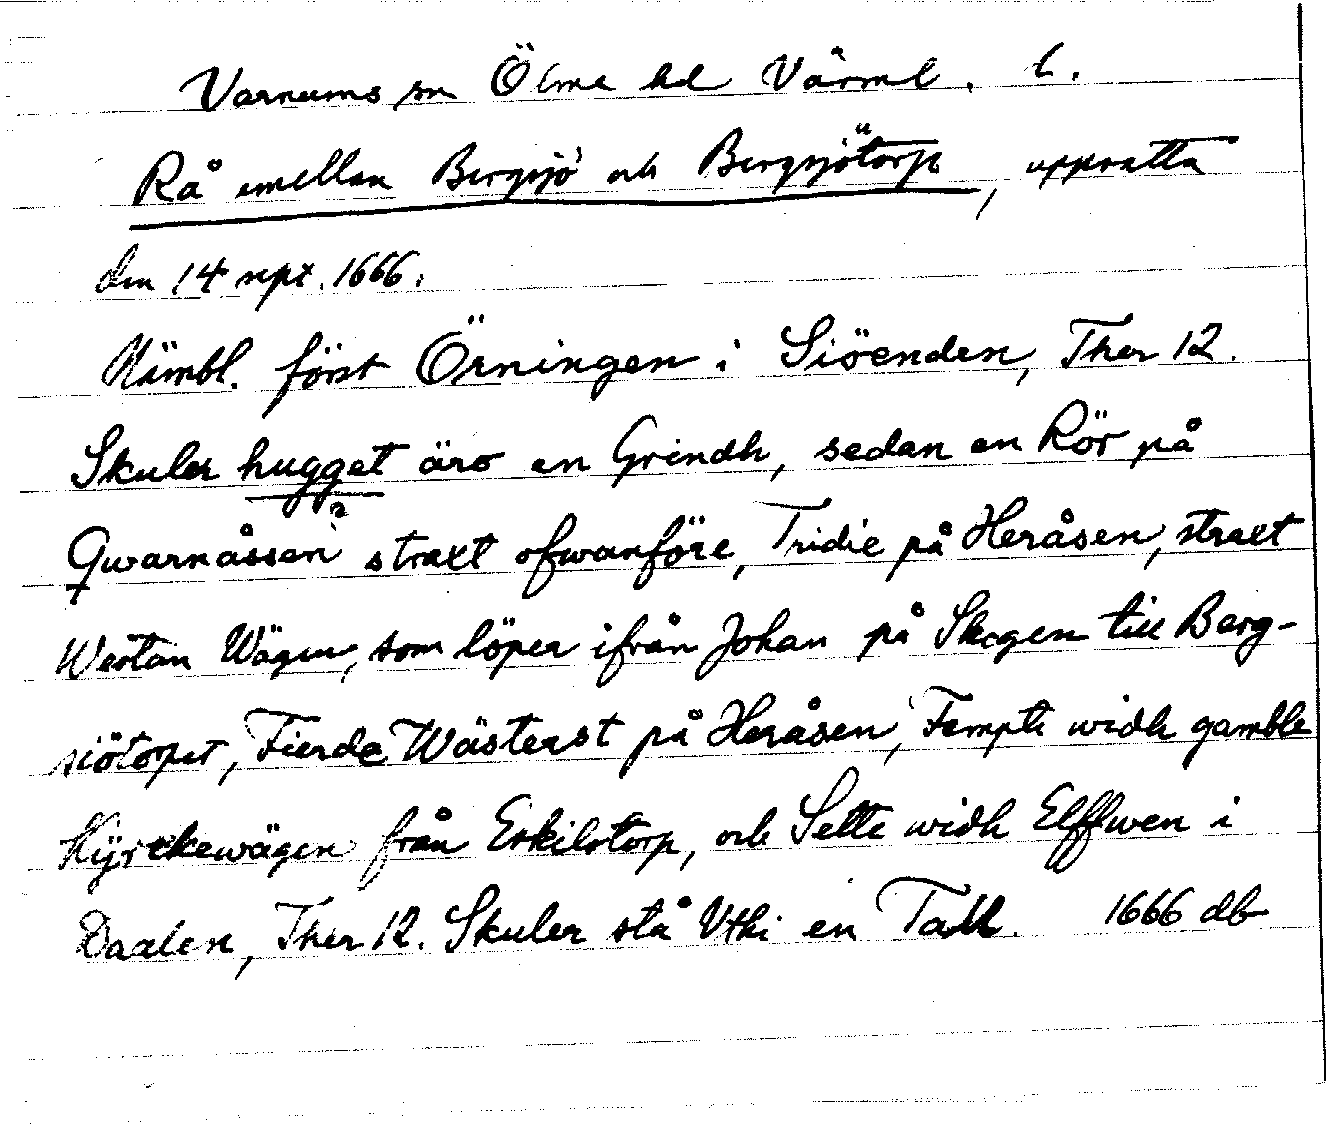 Varnums sn Ölme hd Värml. l.
Rå emellan Bergsjö och Bergsjötorp, upprätta
den 14 sept. 1666.
Nämbl. först Örningen i Siöenden, Ther 12.
Skuler hugget äro en Grindh, sedan en Rör på
?
Qwarnåssen straxt ofwanföre, Tridie på Heråsen, straxt
Westan Wägen, som löper ifrån Johan på Skogen till Berg-
siötorpet, Fierde Wästerst på Heråsen, Fempte widh gamble
Kyrckewägen från Eskilstorp, och Sette widh Elffwen i
Daalen, Ther 12. Skuler stå Vthi en Tall. 1666 db